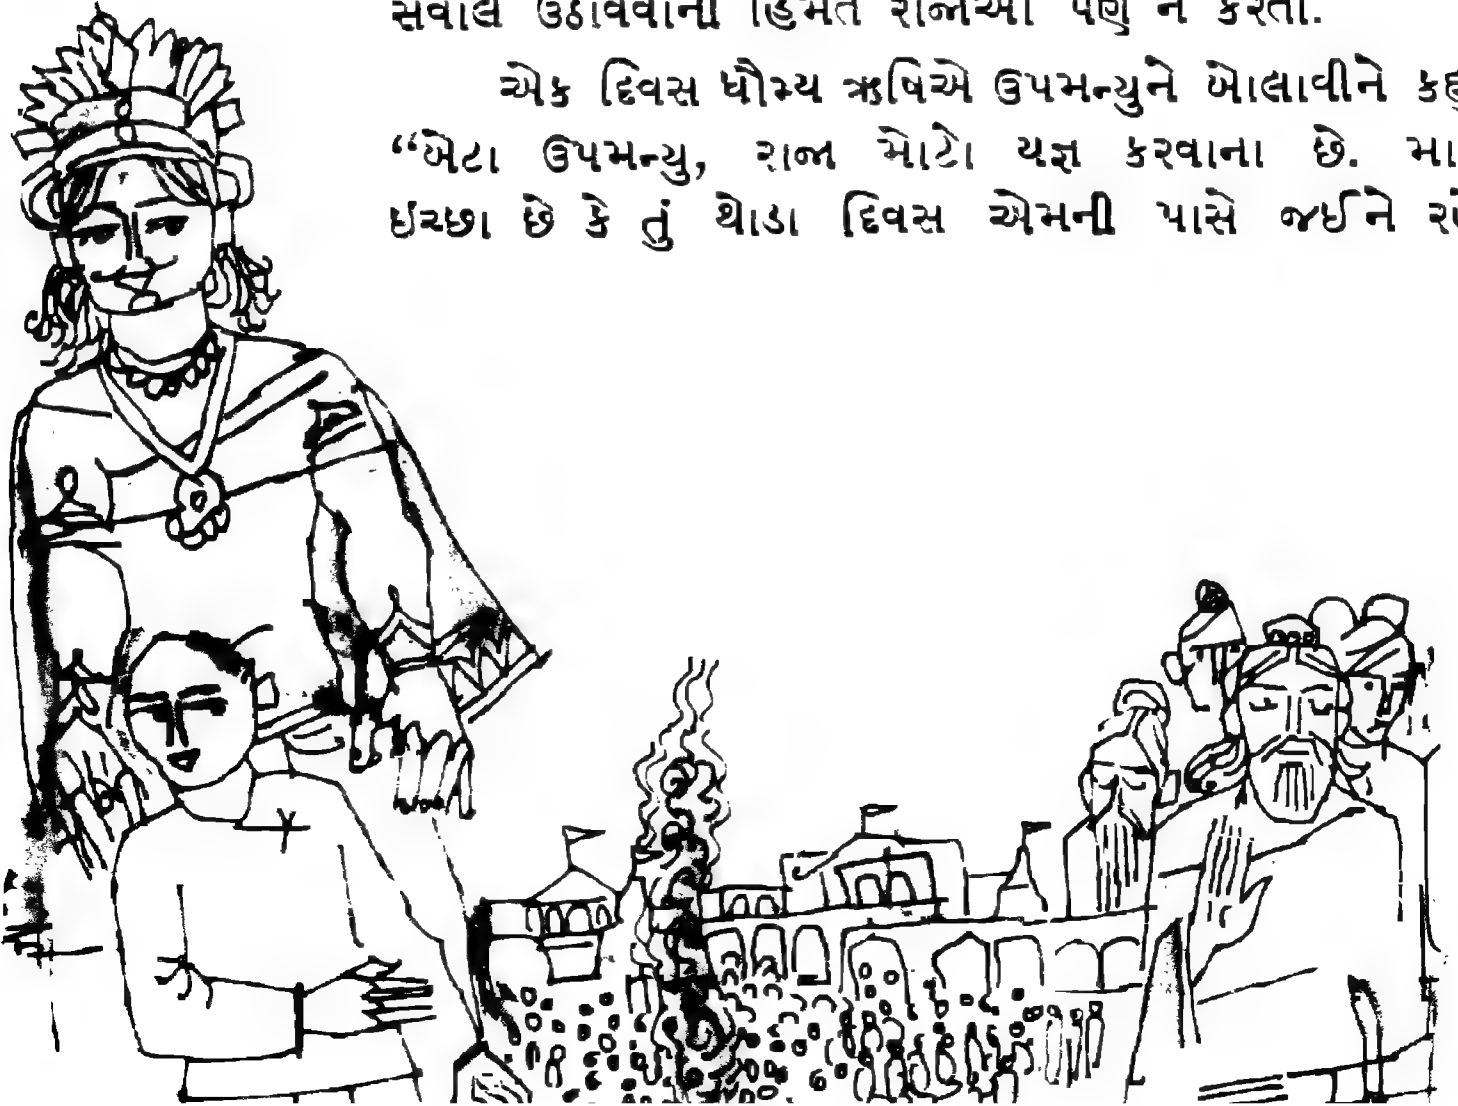 સવાલ ઉઠાવવાની હિંમત રાજાઓ પણ ન કરતા.
એક દિવસ ધૌમ્ય ઋષિએ ઉપમન્યુને બોલાવીને
“બેટા ઉપમન્યુ, રાજા મોટો યજ્ઞ કરવાના છે.
ઇચ્છા છે કે તું થોડા દિવસ એમની પાસે જઈને